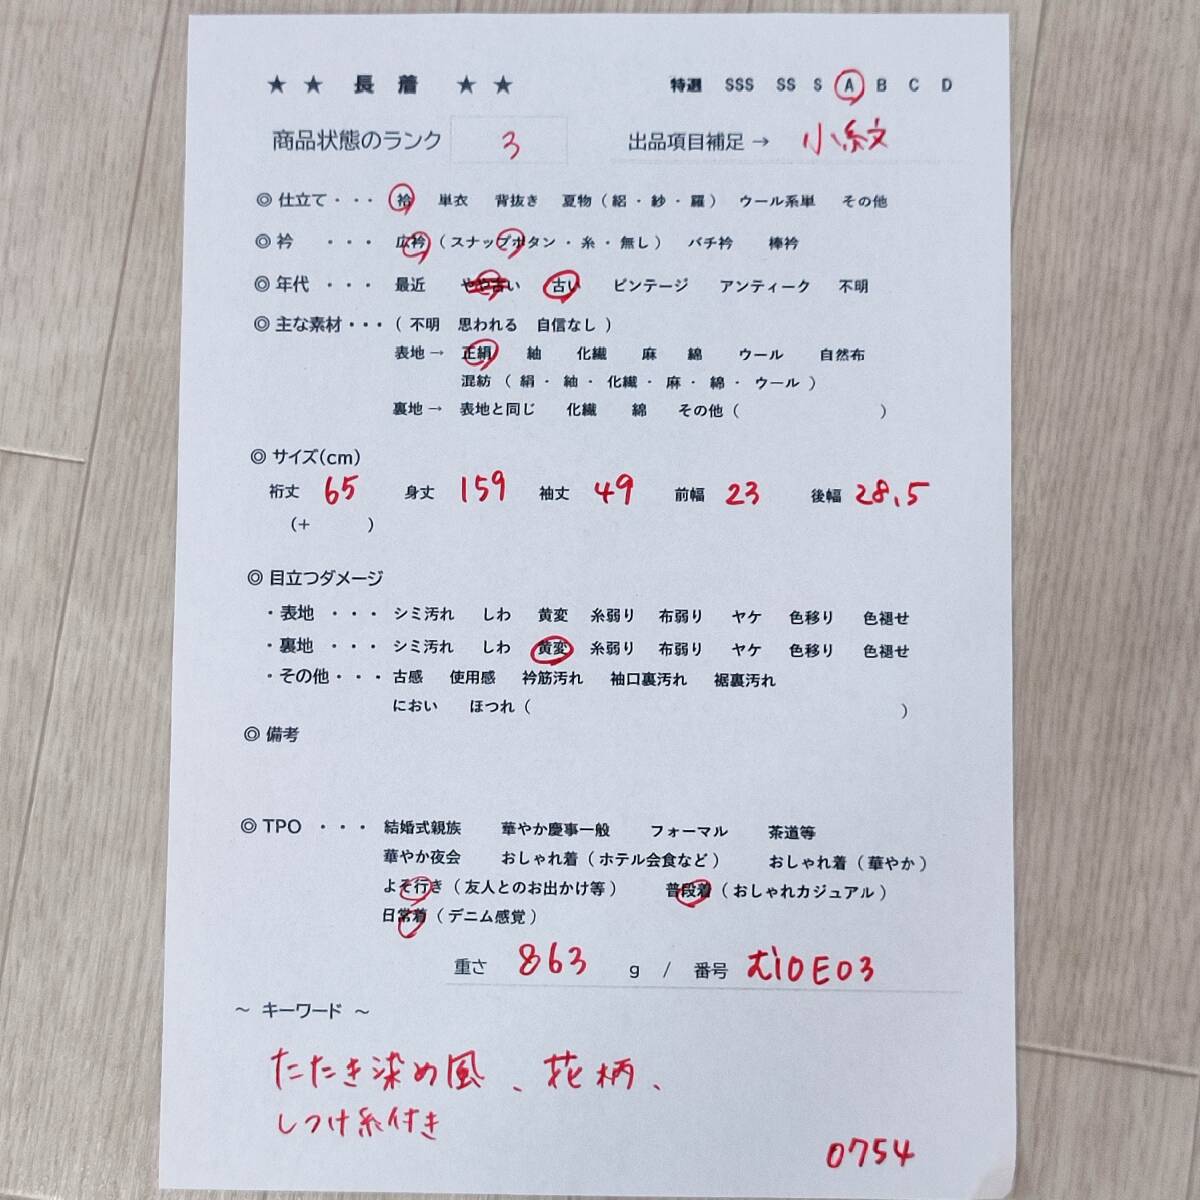 ★ ★ 長 着 ★ ★ 特選 SSS SS S A B C D
商品状態のランク 3 出品項目補足 → 小紋
◎ 仕立て・・・ 袷 単衣 背抜き 夏物 ( 絽 ・ 紗 ・ 羅 ) ウール系単 その他
◎ 衿 ・・・ 広衿 ( スナップボタン ・ 糸 ・ 無し ) バチ衿 棒衿
◎ 年代 ・・・ 最近 やや古い 古い ビンテージ アンティーク 不明
◎ 主な素材・・・ ( 不明 思われる 自信なし )
表地 → 正絹 紬 化繊 麻 綿 ウール 自然布
混紡 ( 絹 ・ 紬 ・ 化繊 ・ 麻 ・ 綿 ・ ウール )
裏地 → 表地と同じ 化繊 綿 その他 ( )
◎ サイズ(cm)
裄丈 65 身丈 159 袖丈 49 前幅 23 後幅 28.5
(+ )
◎ 目立つダメージ
・表地 ・・・ シミ汚れ しわ 黄変 糸弱り 布弱り ヤケ 色移り 色褪せ
・裏地 ・・・ シミ汚れ しわ 黄変 糸弱り 布弱り ヤケ 色移り 色褪せ
・その他・・・ 古感 使用感 衿筋汚れ 袖口裏汚れ 裾裏汚れ
におい ほつれ ( )
◎ 備考
◎ TPO ・・・ 結婚式親族 華やか慶事一般 フォーマル 茶道等
華やか夜会 おしゃれ着 ( ホテル会食など ) おしゃれ着 ( 華やか )
よそ行き ( 友人とのお出かけ等 ) 普段着 ( おしゃれカジュアル )
日常着 ( デニム感覚 )
重さ 863 g / 番号 む10E03
～ キーワード ～
たたき染め風、花柄、
しつけ糸付き
0754